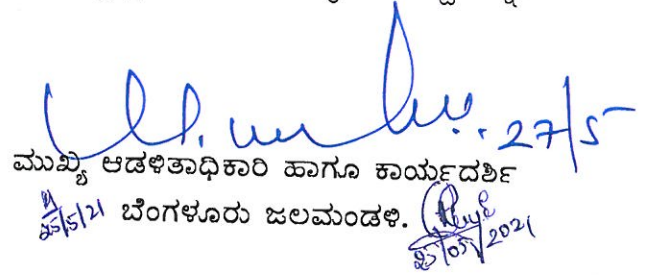 27/5
ಮುಖ್ಯ ಆಡಳಿತಾಧಿಕಾರಿ ಹಾಗೂ ಕಾರ್ಯದರ್ಶಿ
25/5/21 ಬೆಂಗಳೂರು ಜಲಮಂಡಳಿ.
25/05/2021